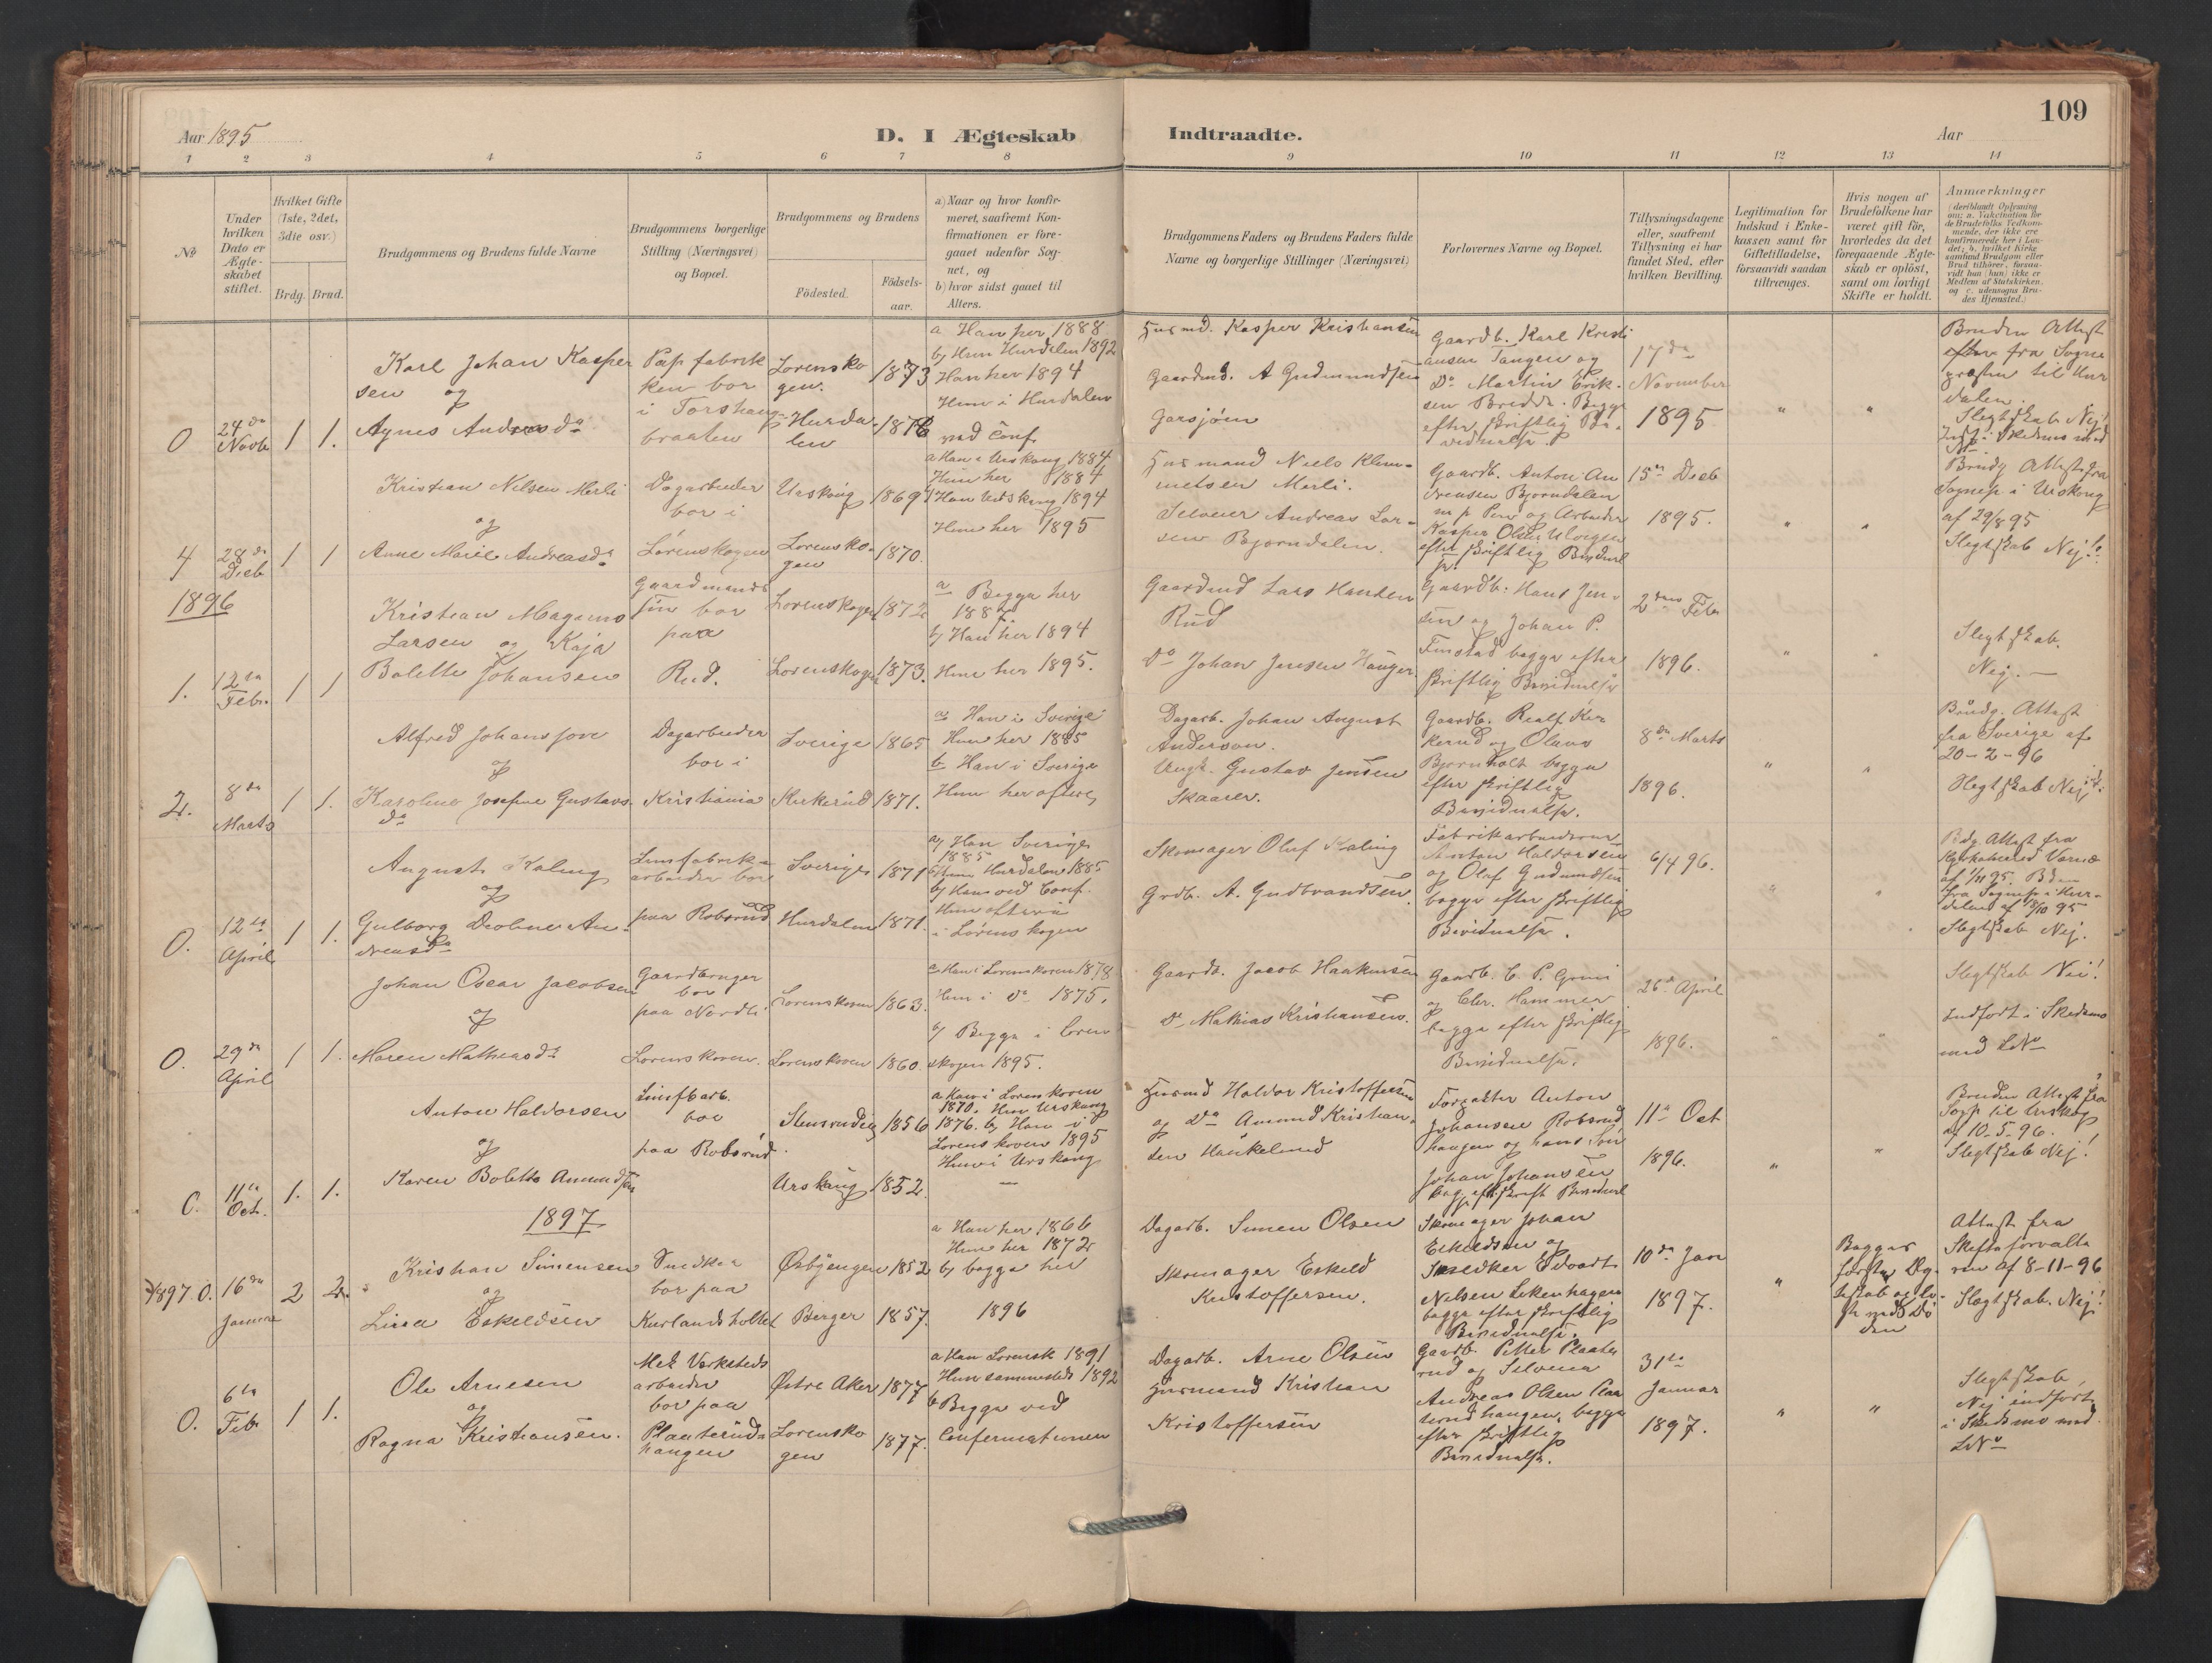 109
Aar 1895
D. I Ægteskab
Indtraadte.
Aar
1 2 3 4 5 6 7 8 9 10 11 12 13 14
No
Under
hvilken
Dato er
Ægte-
skabet
stiftet.
Hvilket Gifte
(1ste, 2det,
3die osv.)
Brdg. Brud.
Brudgommens og Brudens fulde Navne
Brudgommens borgerlige
Stilling (Næringsvei)
og Bopæl.
Brudgommens og Brudens
Födested.
Födsels-
aar.
a) Naar og hvor konfir-
meret, saafremt Kon-
firmationen er fore-
gaaet udenfor Sog-
net, og
b) hvor sidst gaaet til
Alters.
Brudgommens Faders og Brudens Faders fulde
Navne og borgerlige Stillinger (Næringsvei)
Forlovernes Navne og Bopæl.
Tillysningsdagene
eller, saafremt
Tillysning ei har
fundet Sted, efter
hvilken Bevilling.
Legitimation for
Indskud i Enke-
kassen samt for
Giftetilladelse,
forsaavidt saadan
tiltrænges.
Hvis nogen af
Brudefolkene har
været gift för,
hvorledes da det
foregaaende Ægte-
skab er oplöst,
samt om lovligt
Skifte er holdt.
Anmærkninger
(deriblandt Oplysning
om: a. Vakcination for
de Brudefolks Vedkom-
mende, der ikke ere
konfirmerede her i Lan-
det; b. hvilket Kirke
samfund Brudgom eller
Brud tilhörer, forsaa-
vidt han (hun) ikke er
Medlem af Statskirken.
og c. udensogns Bru-
des Hjemsted.)
0
24de
Novbr
1
1.
Karl Johan Kasper
sen og
Agnes Andreasda
Papfabrik
ken bor
i Torshaug
braaten
Lorensko
gen.
Hurda
len
1873
1876
a Han her 1888
b) Hun Hurdalen 1892
Han her 1894
Hun i Hurdalen
ved Conf.
Husmd. Kasper Kristiansen
Gaardmd. A Gudmundsen
Garsjøen
Gaardb. Karl Kristi
ansen Tangen og
Do Martin Erik-
sen Bredde. Begge
efter skriftlig Be-
vidnelse.
17de
November
1895
"
"
Bruden Attest
fra Sogne
præsten til Hur
dalen.
Slegtskab Nej!
4
28de
Dceb
1
1
Kristian Nilsen Merli
og
Anne Marie Andreasda
Dagarbeider
bor i
Lørenskogen
Urskoug
Lorensko-
gen
1869
1870.
a Han i Urskoug 1884
Hun her 1884
Han Urskoug 1894
Hun her 1895
Husmand Niels Klem-
metsen Merli.
Selveier Andreas Lar-
sen Bjorndalen.
Gaardb. Anton An
dreasen Bjorndalen
m p Pen og Arbeider
Kasper Olsen Ulveigen
efter skriftlig Bevidnel
se.
15de Dceb
1895.
"
"
Brudg Attest fra
Sognep i Urskoug
af 29/8 95
Slegtskab Nej!
1896
1.
12te
Febr.
1
1
Kristian Magnus
Larsen og Kaja
Bolette Johansen
Gaardmands
søn bor
paa
Rud.
Lorenskogen
Lorenskogen
1872
1873.
a Begge her
1887
b) Han her 1894
Hun her 1895.
Gaardmd Lars Hansen
Rud
Do Johan Jensen Hauger
Gaardb. Hans Jen-
sen og Johan P.
Finstad begge efter
skriftlig Bevidnelse
2den Feb
1896.
"
"
Slegtskab.
Nej.
2.
8de
Marts
1
1.
Alfred Johansson
og
Karoline Josefine Gustavs.
da
Dagarbeider
bor i
Kristiania
Sverige
Kirkerud
1865
1871.
a Han i Sverige
Hun her 1885
b Han i Sverige
Hun her oftere
Dagarb. Johan August
Anderson.
Ungk. Gustav Jensen
Skaarer.
Gaardb. Realf Kir
kerud og Olaus
Bjornholt begge
efter skriftlig
Bevidnelse.
8de Marts
1896.
"
"
Brudg. Attest
fra Sverige af
20-2-96
Slegtskab Nej
0.
12te
April
1
1.
August Kaling
og
Gulborg Deoline An-
dreasda
Limfabrik-
arbeider bor
paa Robsrud
Sverige
Hurdalen
1871
1871.
a) Han Sverige
1885
Hun Hurdalen 1885
b) Han ved Conf.
Hun oftere
i Lørenskogen
Skomager Oluf Kaling
Grdb. A. Gudbrandsen.
Fabrikarbeiderne
Anton Haldorsen
og Olaf Gudmundsen
begge efter skriftlig
Bevidnelse.
6/4 96.
"
"
Bdg. Attest fra
af 1/11 95.
fra Sognep. i Hur-
dalen af 8/10 95
Slegtskab Nej.
0.
29de
April
1
1.
Johan Oscar Jacobsen
og
Maren Mathiasda
Gaardbruger
bor
paa Nordli
Lorenskoven.
Lorenskoven
Lorenskoven
1863.
1860.
a Han i Lorenskoven 1878
Hun i do 1875.
b) Begge i Loren
skogen 1895.
Gaardb. Jacob Haakensen
Do Mathias Kristiansen.
Gaardb. C. P. Grini
og Chr. Hammer
begge efter skriftlig
Bevidnelse.
26de April
1896.
"
"
Slegtskab Nei!
Indfort i Skedsmo
med L No
0.
11te
Oct.
1.
1.
Anton Haldorsen
og
Karen Bolette Amundsen
Limfbarb.
bor
paa Robsrud.
Stensrudeie
Urskoug
1856
1852.
a Han i Lorenskoven
1870. Hun Urskoug
1876. b) Han i
Lorenskoven 1895
Hun i Urskoug
Husmd Haldor Kristoffersen
og Do Amund Kristian-
sen Haukelund
Forpakter Anton
Johansen Robsrud
haugen og hans Søn
Johan Johansen
begge eft. skrift Bevidnel
11te Oct
1896.
"
"
Bruden Attest fra
Sogp til Urskog
af 10-5-96.
Slegtskab Nej!
1897
1897 0.
16de
Januar
2
2.
Kristian Simensen
og
Lina Eskeldsen
Snedker
bor paa
Kurlandsholtet
Østbyengen
Berger
1852
1857.
a Han her 1866
Hun her 1872
b) begge her
1896
Dagarb. Simen Olsen
Skomager Eskeld
Kristoffersen.
Skomager Johan
Eskeldsen og
Snedker Edvart
Nilsen Lekenhagen
begge efter skriftlig
Bevidnelse.
10de Jan
1897.
"
Begges
første Æg-
teskab oplø-
st ved Dø
den
Attest fra
Skifteforvalte
ren af 8-11-96
Slegtskab. Nej!
0.
6te
Feb
1
1.
Ole Arnesen
og
Ragna Kristiansen.
Mek Verksteds
arbeider
bor paa
Plaaterud-
haugen
Østre Aker
Lorensko
gen
1877
1877.
a Han Lorensk 1891
Hun sammesteds 1892
b Begge ved
Confermationen
Dagarb. Arne Olsen
Husmand Kristian
Kristoffersen
Gaardb. Petter Plaate
rud og Selveier
Andreas Olsen Plaa
terudhaugen, begge
efter skriftlig
Bevidnelse.
31te
Januar
1897.
"
"
Slegtskab
Nej indfort
i Skedsmo med
L No